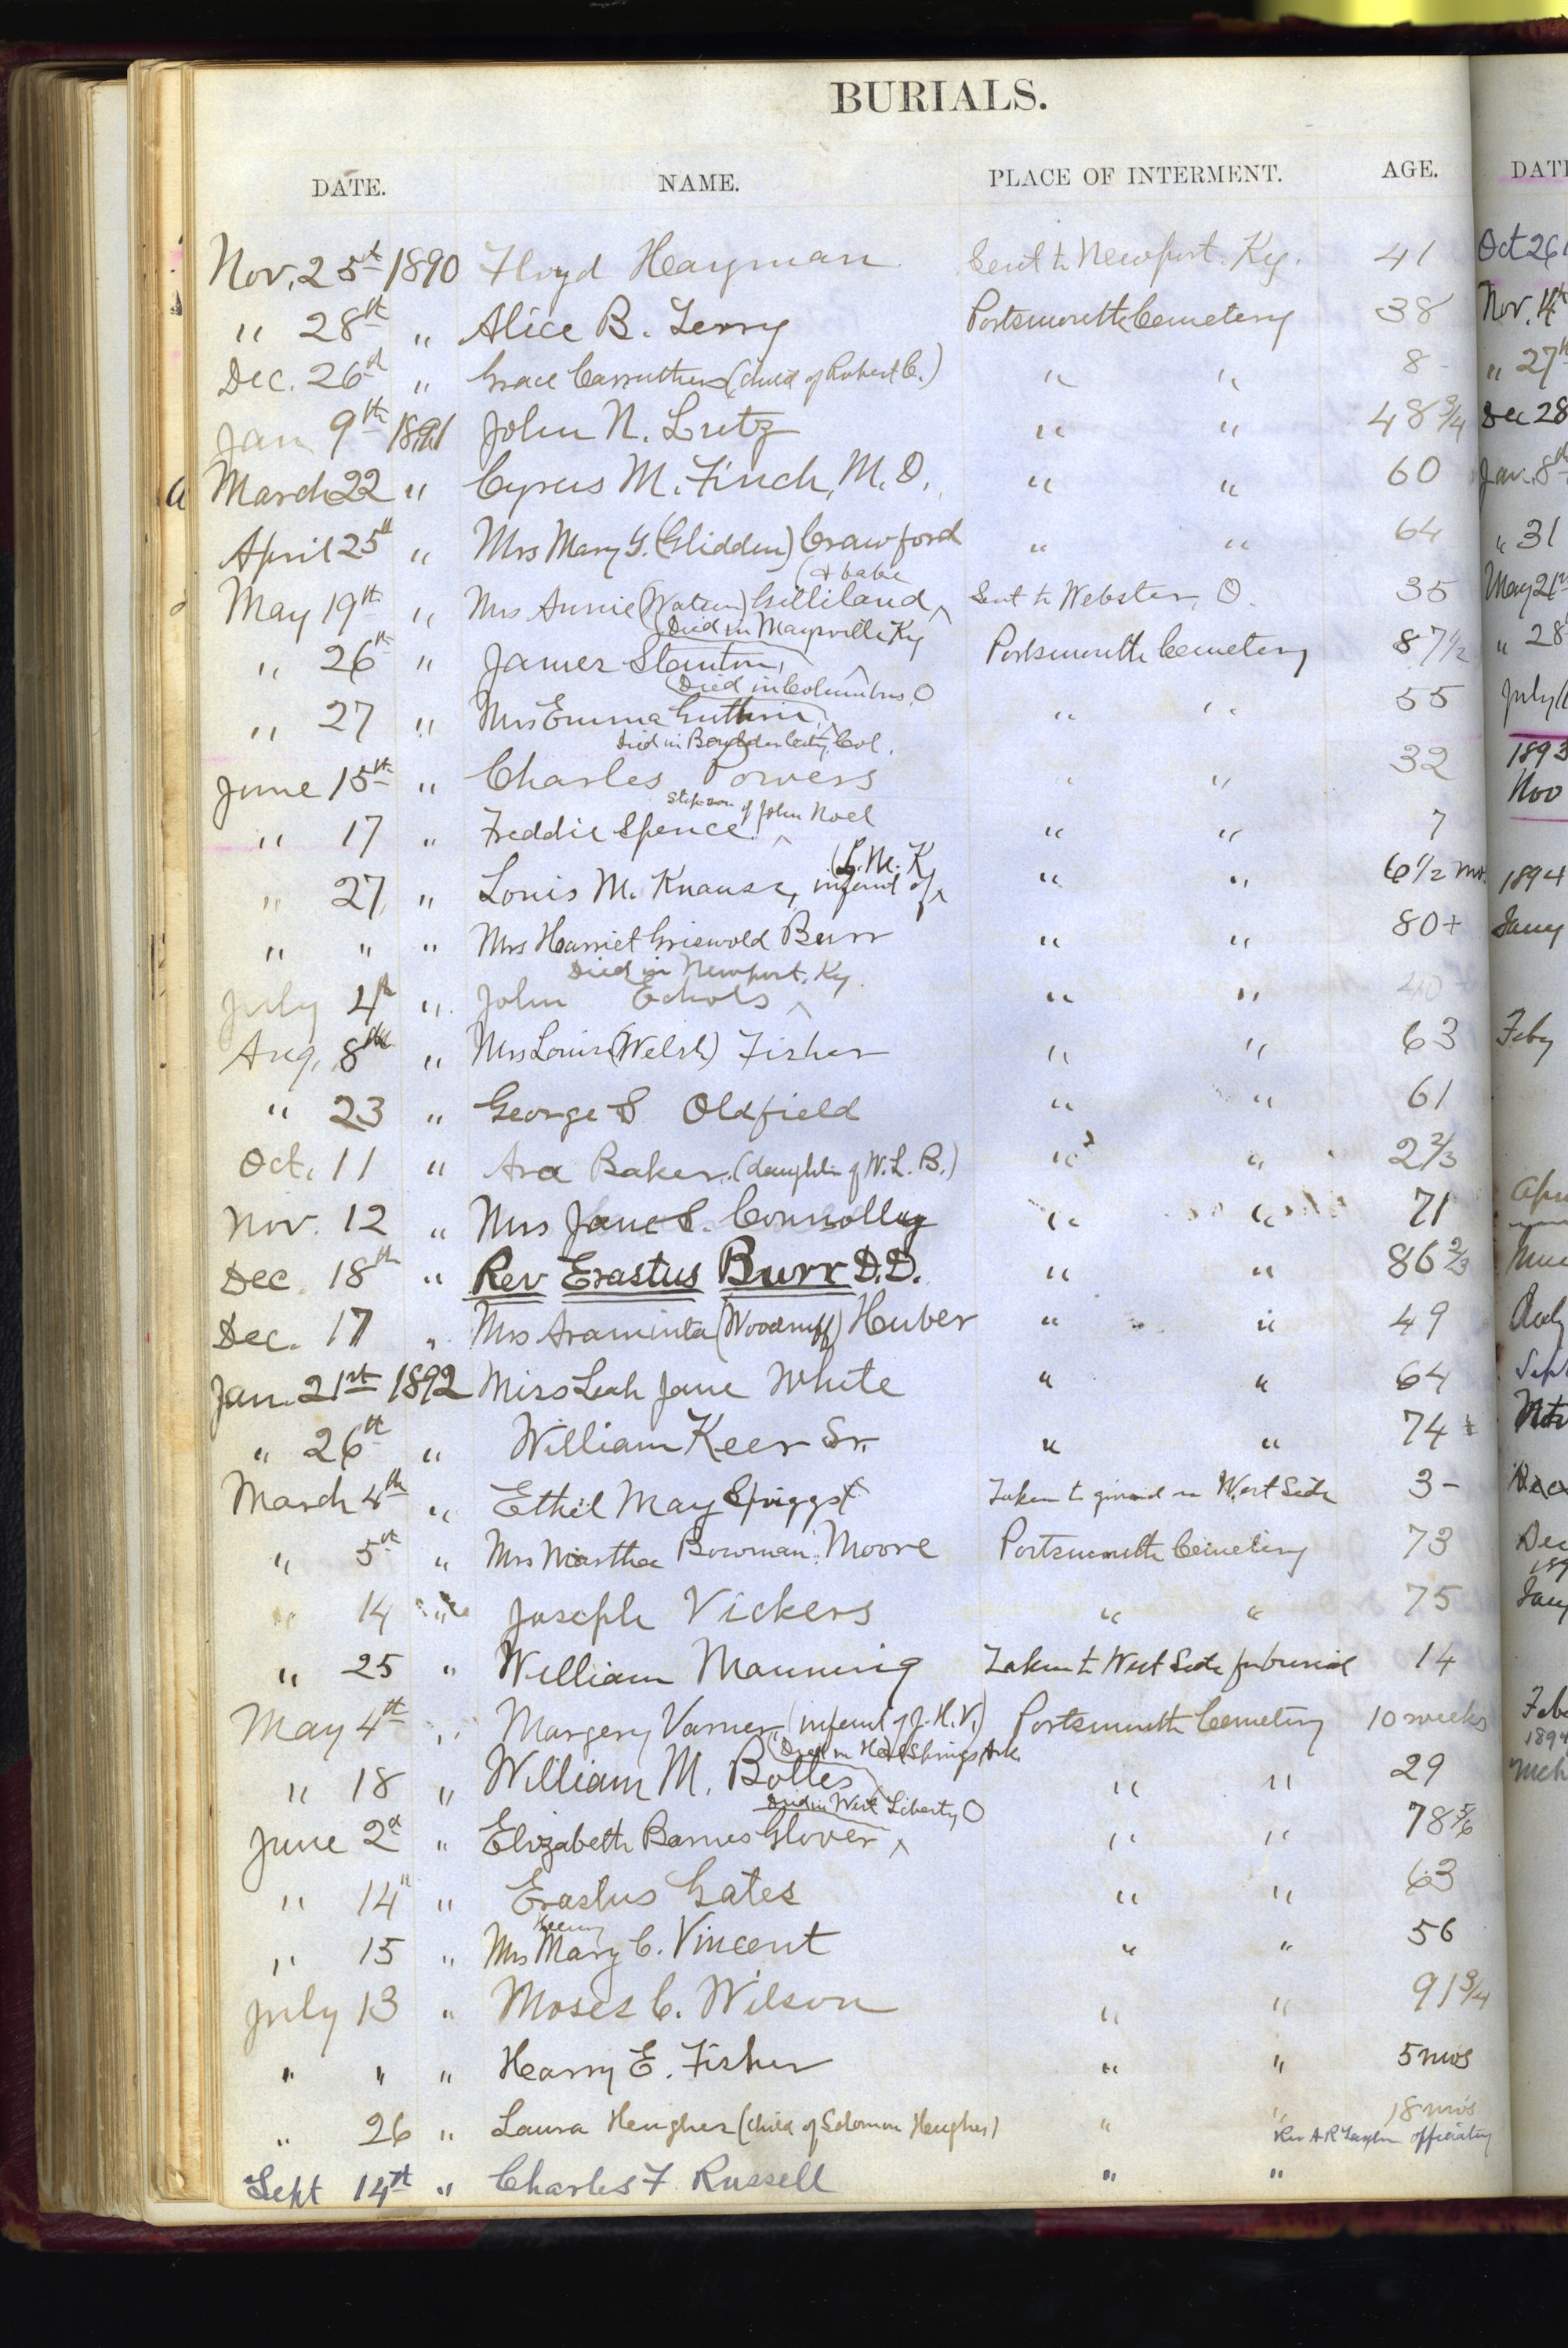 BURIALS.
DATE. NAME. PLACE OF INTERMENT. AGE. DATE
Nov. 25th 1890 Floyd Hayman Sent to Newport. Ky. 41
" 28th " Alice B. Terry Portsmouth Cemetery 38
Dec. 26th " Grace Carruthers (child of Robert C.) " " 8-
Jan 9th 1891 John N. Lutz " " 48 3/4
March 22 " Cyrus M. Finch, M.D. " " 60
April 25th " Mrs Mary G. (Glidden) Crawford " " 64
(& babe
May 19th " Mrs Annie (Watson) Gilliland ^ Sent to Webster, O. 35
(Died in Maysville Ky
" 26th " James Stanton, ^ Portsmouth Cemetery 87 1/2
(Died in Columbus, O
" 27 " Mrs Emma Guthrie, ^ " " 55
Died in Boulder City, Col.
June 15th " Charles Powers " " 32
Stepson of John Noel
" 17 " Freddie Spence ^ " " 7
(L. M. K.
" 27 " Louis M. Knauss, infant of ^ " " 6 1/2 mo.
" " " Mrs Harriet Griswold Burr " " 80+
Died in Newport, Ky.
July 4th " John Echols ^ " " 40+
Aug. 8th " Mrs Louisa (Welsh) Fisher " " 63
" 23 " George S Oldfield " " 61
Oct. 11 " Ara Baker. (daughter of W. L. B.) " " 2 2/3
Nov. 12 " Mrs Jane S. Connolley " " 71
Dec. 18th " Rev Erastus Burr D.D. " " 86 2/3
Dec. 17 " Mrs Araminta (Woodruff) Huber " " 49
Jan. 21st 1892 Miss Leah Jane White " " 64
" 26th " William Keer Sr. " " 74 ±
March 4th " Ethel May Spriggs Taken to ground on West Side 3-
" 5th " Mrs Martha Bowman Moore Portsmouth Cemetery 73
" 14 " Joseph Vickers " " 75
" 25 " William Manning Taken to West Side for burial 14
May 4th " Margery Varner, (infant of J. H. V.) Portsmouth Cemetery 10 weeks
(Died in Hot Springs, Ark.
" 18 " William M. Bolles " " 29
Died in West Liberty O
June 2d " Elizabeth Barnes Glover ^ " " 78 5/6
" 14th " Erastus Gates " " 63
" 15 " Mrs Mary C. Vincent " " 56
July 13 " Moses C. Wilson " " 91 3/4
" " " Harry E. Fisher " " 5 mos
" 26 " Laura Hughes (child of Solomon Hughes) " " 18 mos
Rev A R Taylor officiating
Sept 14th " Charles F Russell " "
Oct 26
Nov. 4th
" 27th
Dec 28
Jan. 8th
" 31
May 21st
" 28
July
1893
Nov
1894
Jany
Feby
Dec
Jany
1894
Mch